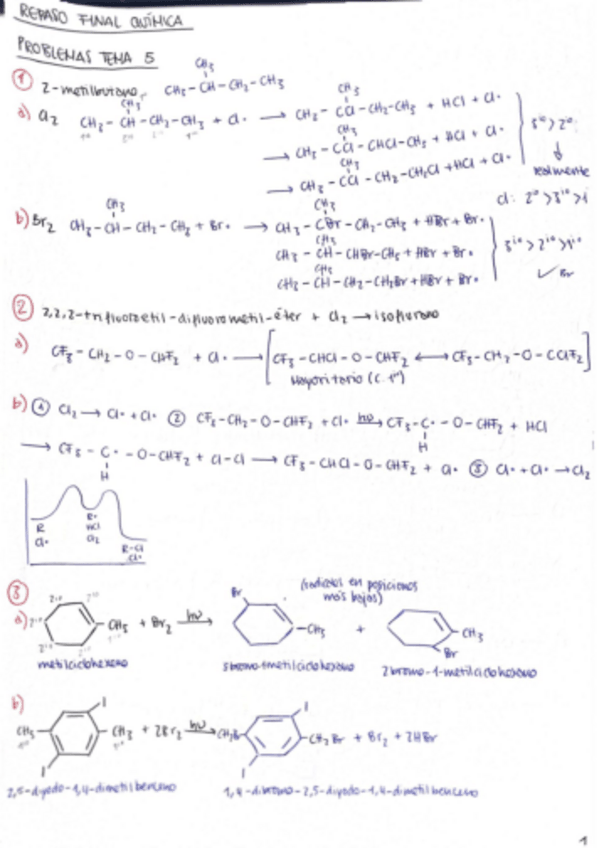 REPASO FINAL QUÍMICA
PROBLEMAS TEMA 5
① 2-metilbutano CH3-CH-CH2-CH3
CH3
a) Cl2 CH3-CH-CH2-CH3 + Cl· → CH3-CCl-CH2-CH3 + HCl + Cl·
CH3
→ CH3-CCl-CHCl-CH3 + HCl + Cl·
CH3
→ CH3-CCl-CH2-CH2Cl + HCl + Cl·
3io > 2o
realmente
Cl: 2o > 3io > i
b) Br2 CH3-CH-CH2-CH3 + Br· → CH3-CBr-CH2-CH3 + HBr + Br·
CH3
CH3-CH-CHBr-CH3 + HBr + Br·
CH3
CH3-CH-CH2-CH2Br + HBr + Br·
3io > 2io > 1io
✓ Br
② 2,2,2-trifluoroetil-difluorometil-éter + Cl2 → isoflurano
a) CF3-CH2-O-CHF2 + Cl· → [CF3-CHCl-O-CHF2 ⟷ CF3-CH2-O-CClF2]
Mayoritario (C. 1io)
b) ① Cl2 → Cl· + Cl· ② CF3-CH2-O-CHF2 + Cl· hν→ CF3-C·-O-CHF2 + HCl
H
→ CF3-C·-O-CHF2 + Cl-Cl → CF3-CHCl-O-CHF2 + Cl· ③ Cl· + Cl· → Cl2
H
R
Cl·
R·
HCl
Cl2
R-Cl
Cl·
③
(radicales en posiciones más bajas)
a) CH3 + Br2 hν→ Br CH3 + CH3 Br
metilciclohexeno 3bromo-1metilciclohexeno 2bromo-1-metilciclohexeno
b) CH3 I I CH3 + 2Br2 hν→ CH2Br I I CH2Br + Br2 + 2HBr
2,5-diyodo-1,4-dimetilbenceno 1,4-dibromo-2,5-diyodo-1,4-dimetilbenceno
1